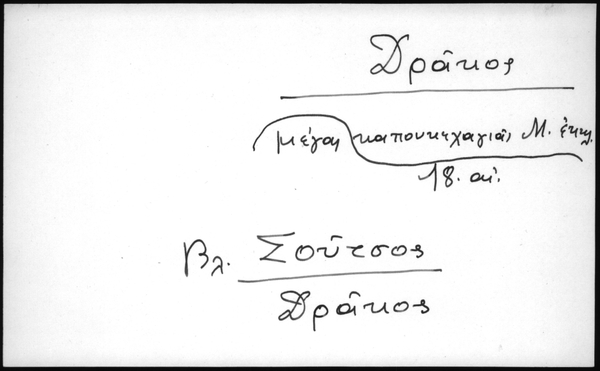 Δράκος
μέγας καπουκεχαγιάς, Μ. ἐκκλ.
18. αἰ.
Βλ. Σοῦτσος
Δράκος